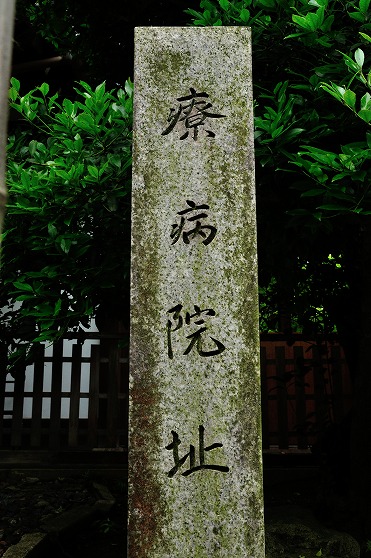 療病院址